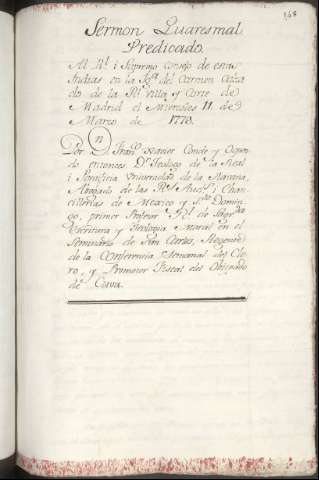 168
Sermon Quaresmal
Predicado
Al Rl. i Supremo Consejo de estas
Indias en la Iga. del Carmen Calza
do de la Rl. Villa, y Corte de
Madrid el Miercoles 11 de
Marzo de 1778.
Por Dn. Franco. Xavier Conde y Oquen
do entonces Dr. Teologo de la Real
i Pontificia Universidad de la Havana,
Abogado de las Rs. Audas. y Chan
cillerias de Mexico y Sto. Domin
go, primer Profesor Rl. de Sagrda
Escritura y Teologia Moral en el
Seminario de San Carlos, Regente
de la Conferencia Semanal del Cle
ro, y Promotor Fiscal del Obispado
de Cuva.